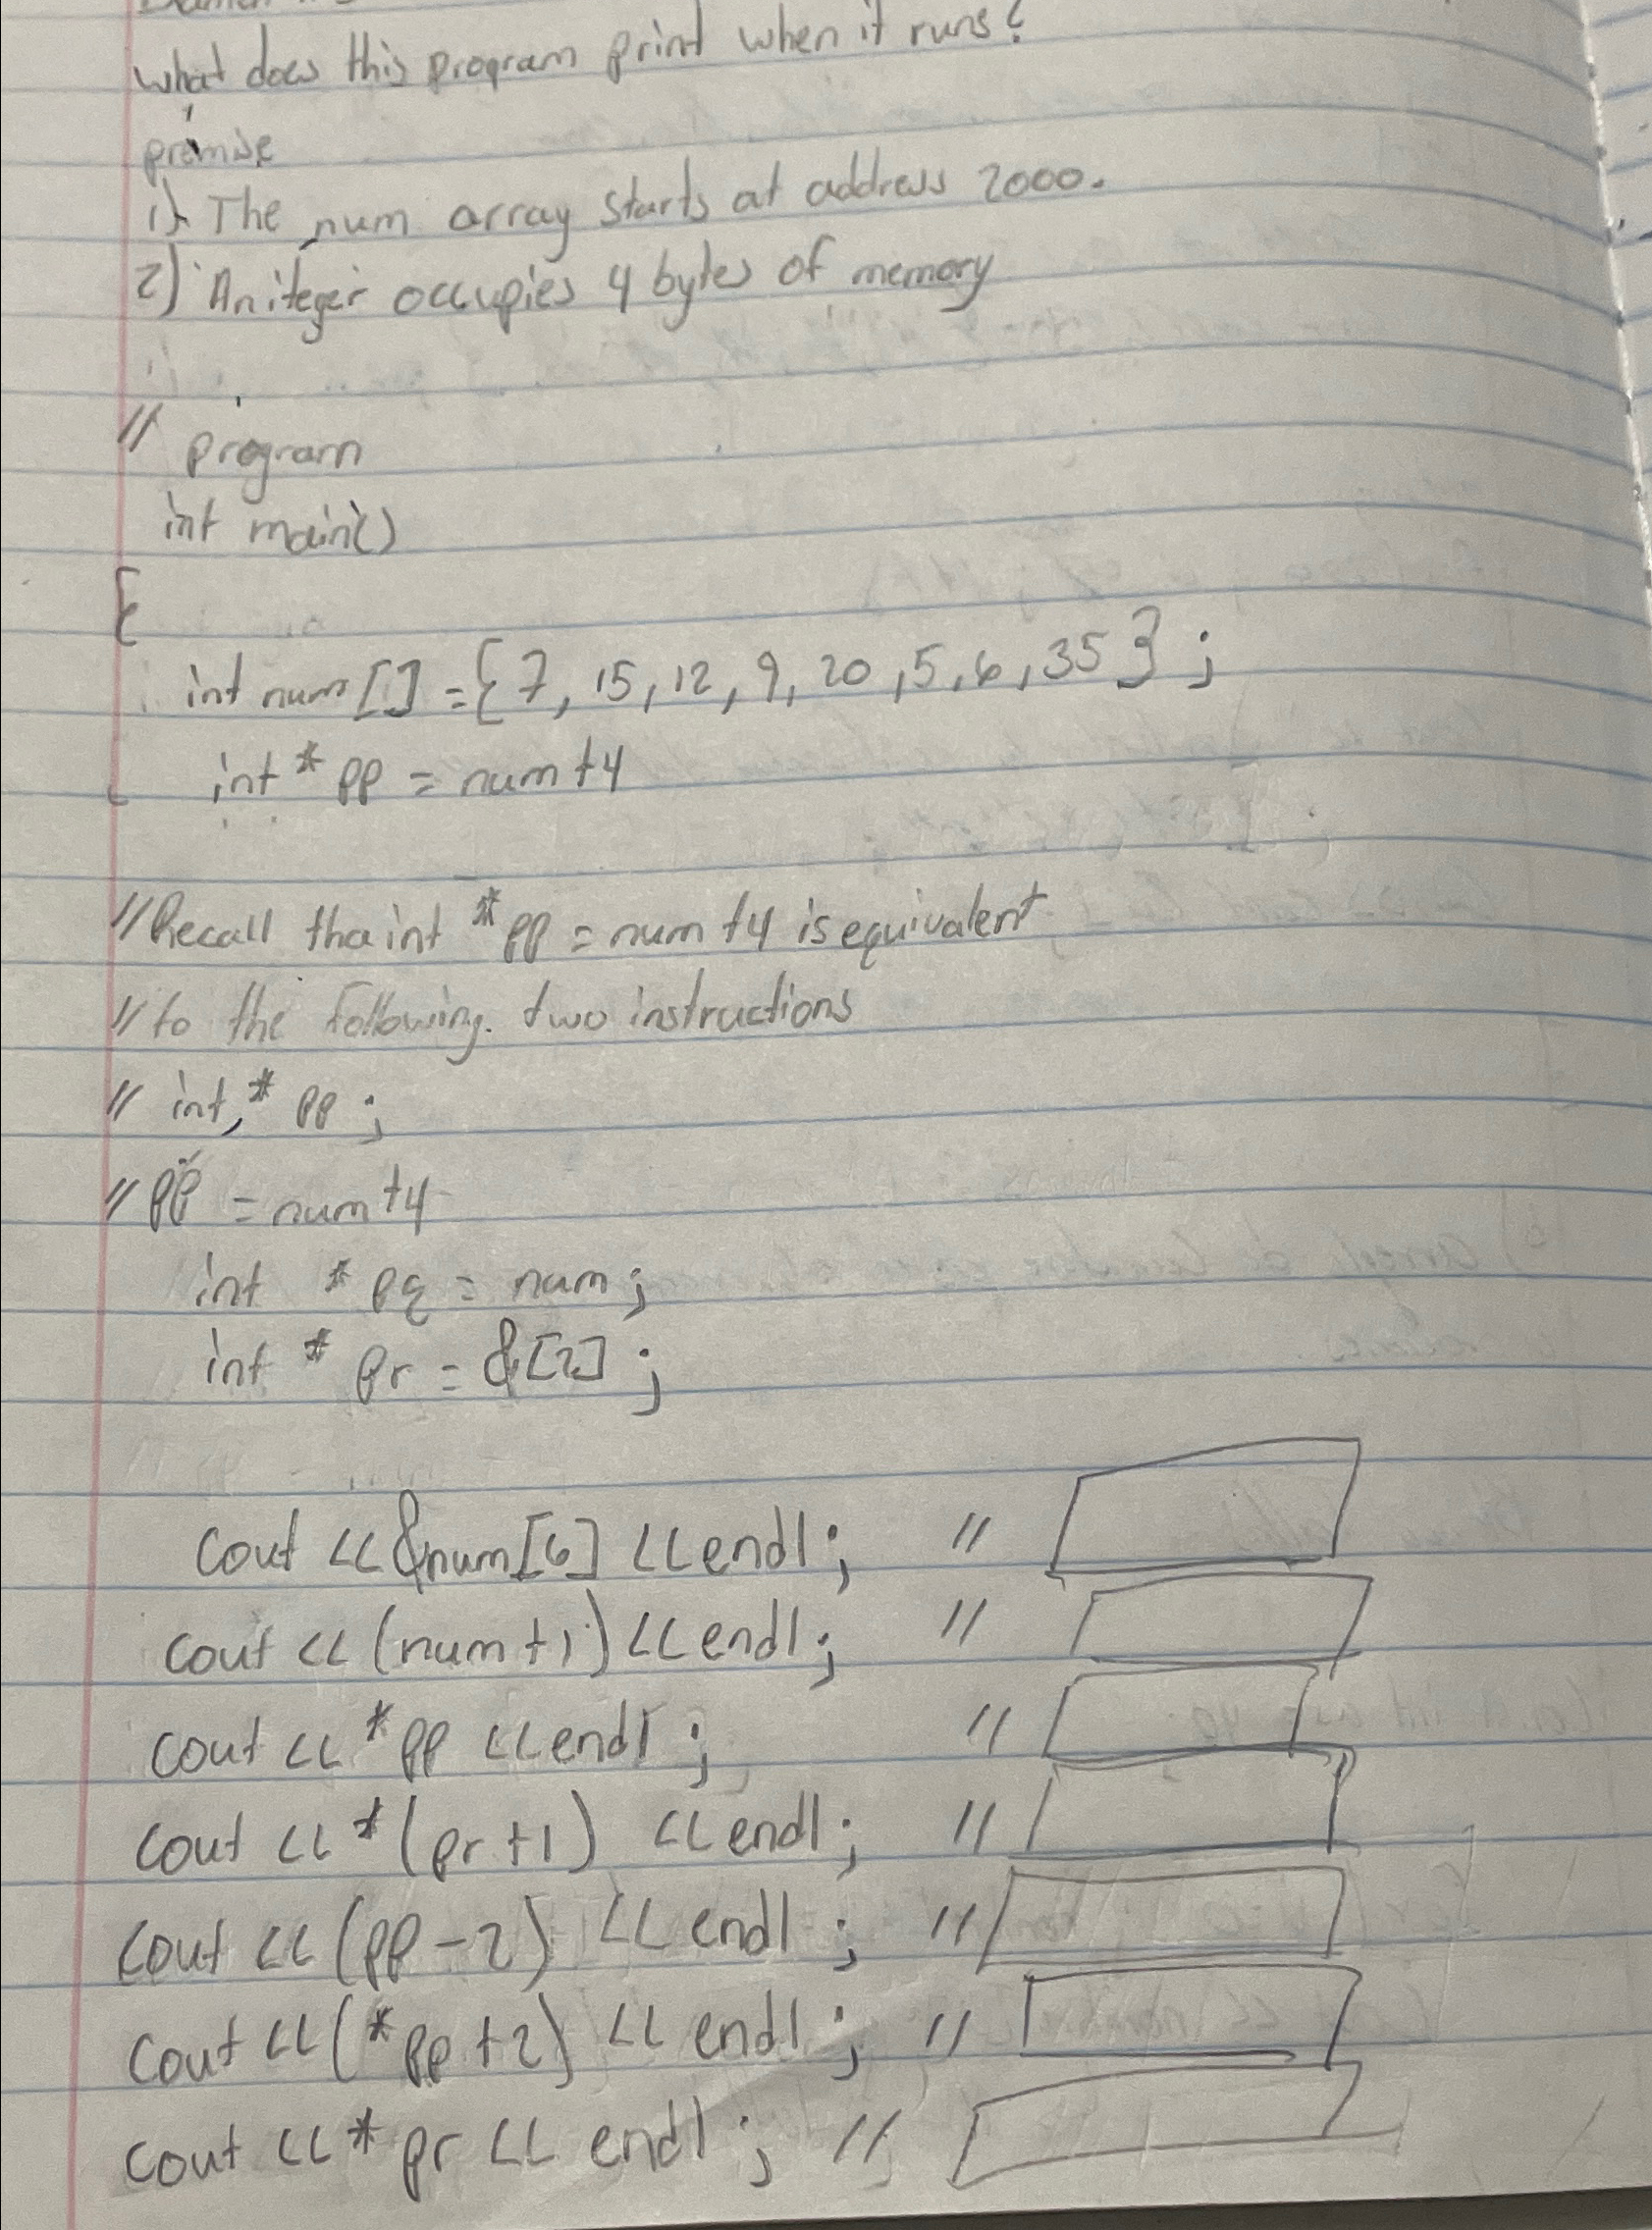 what does this program print when it runs?
premise
1) The num array starts at address 2000.
2) An iteger occupies 4 bytes of memory
// program
int main()
{
int num[] = {7, 15, 12, 9, 20, 5, 6, 35};
int * pp = num +4
// Recall tha int * pp = num +4 is equivalent
// to the following. two instructions
// int, * pp ;
// pp = num +4
int * pq = num ;
int * pr = &[2] ;
cout << &num[6] << endl ; //
cout << (num+1) << endl ; //
cout << * pp << endl ; //
cout << * (pr+1) << endl ; //
cout << (pp-2) << endl ; //
cout << (* pp +2) << endl ; //
cout << * pr << endl ; //